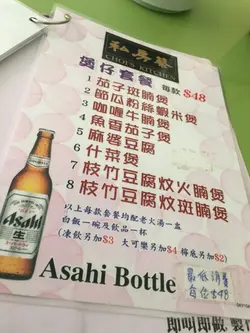 私房餐
CHOI'S KITCHEN
煲仔套餐 每款 $48
1 茄子斑腩煲
2 節瓜粉絲蝦米煲
3 咖喱牛腩煲
4 魚香茄子煲
5 麻婆豆腐
6 什菜煲
7 枝竹豆腐炆火腩煲
8 枝竹豆腐炆斑腩煲
以上每款套餐均配老火湯一盅
白飯一碗及飲品一杯
(凍飲另加$3 大可樂另加$4 檸底另加$2)
Asahi
生
Asahi Bottle
最低消費
每位$48
即叫即做